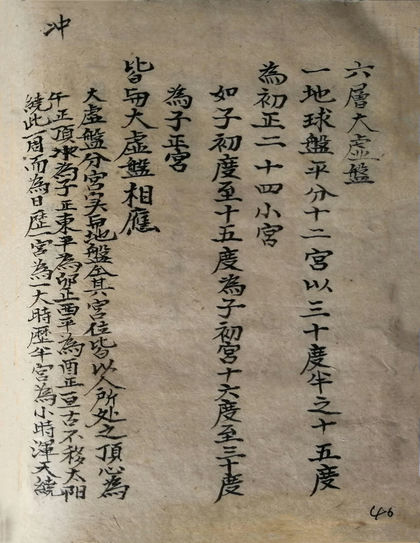 冲
六層大虛盤
一地球盤平分十二宮以三十度半之十五度
為初正二十四小宮
如子初度至十五度為子初宮十六度至三十度
為子正宮
皆与大虛盤相應
大虛盤分宮与地盤全其宮位皆以人所处之頂心為
午正頂冲為子正東平為卯正西平為酉正亘古不移太陽
繞此一周而為日歷一宮為一大時歷半宮為小時渾天繞
46